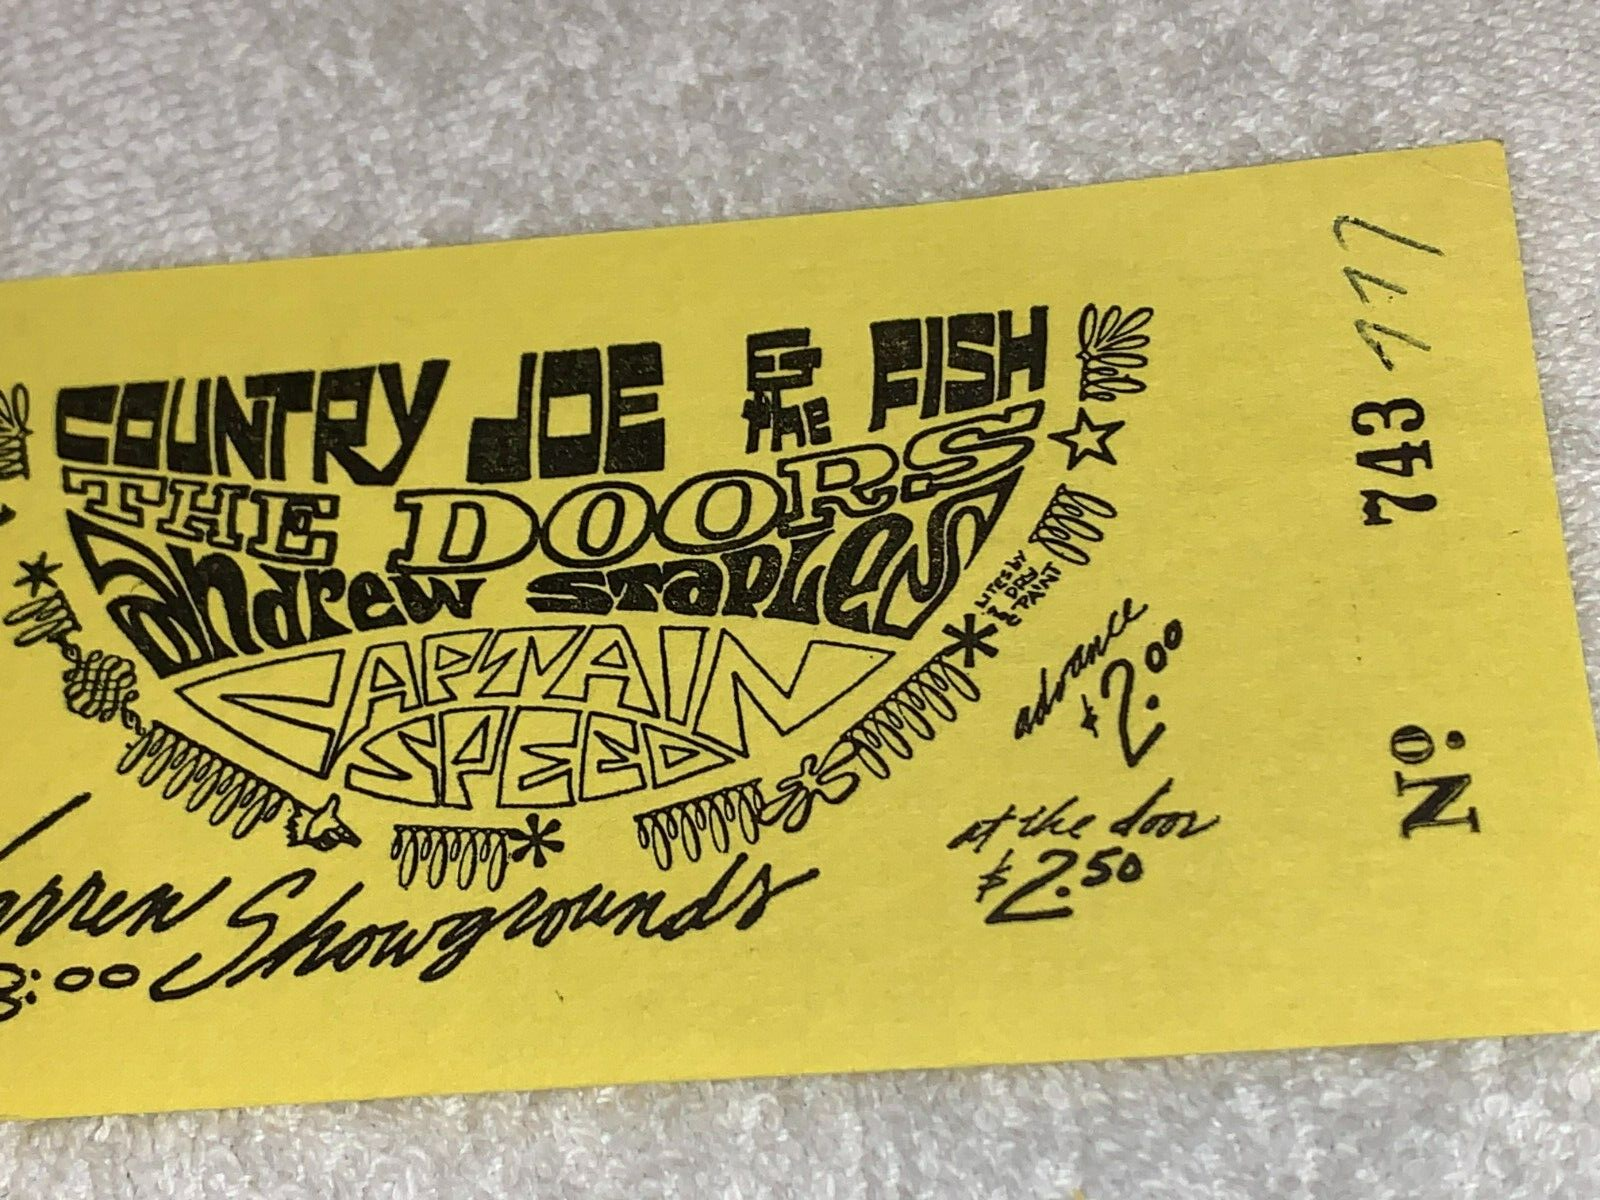 COUNTRY JOE & the FISH
THE DOORS
andrew STAPLES
CAPTAIN
SPEED
LITES BY
DRY
PAINT
advance
$2.00
at the door
$2.50
Showgrounds
:00
No. 743